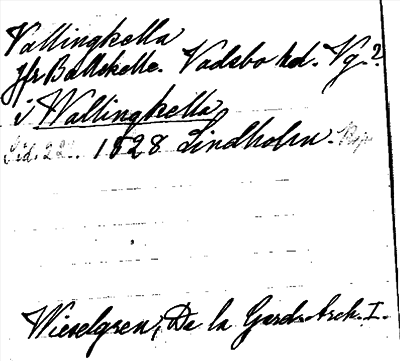 Vallingkella
Jfr Ballskelle. Vadsbo hd. Vg?
i Wallingkella
Sid. 22. 1528 Lindholm.
Wieselgren, De la Gard. Arch. I.